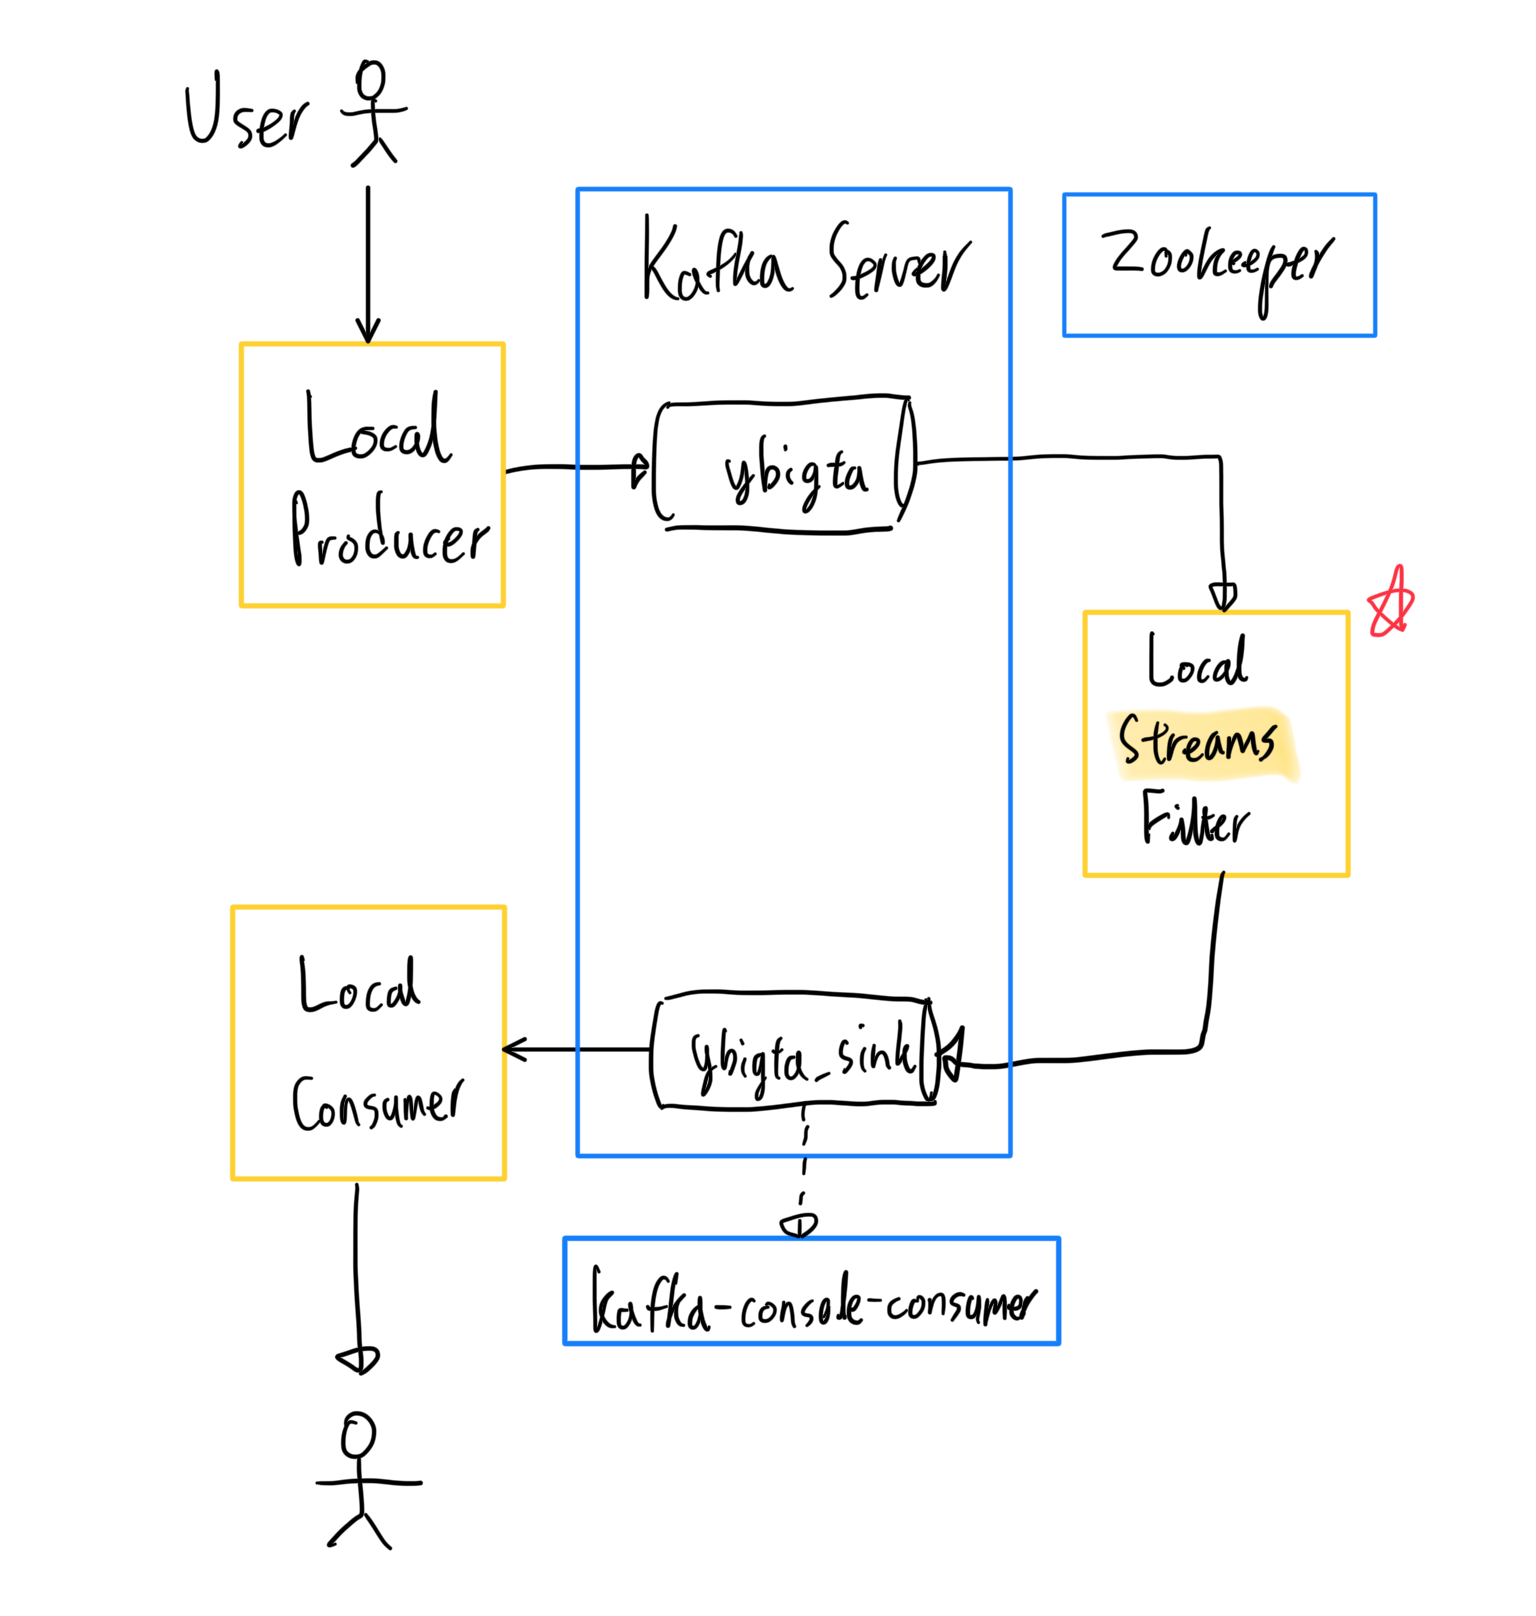 User
Kafka Server
Zookeeper
Local
Producer
ybigta
Local
Streams
Filter
Local
Consumer
ybigta_sink
kafka-console-consumer